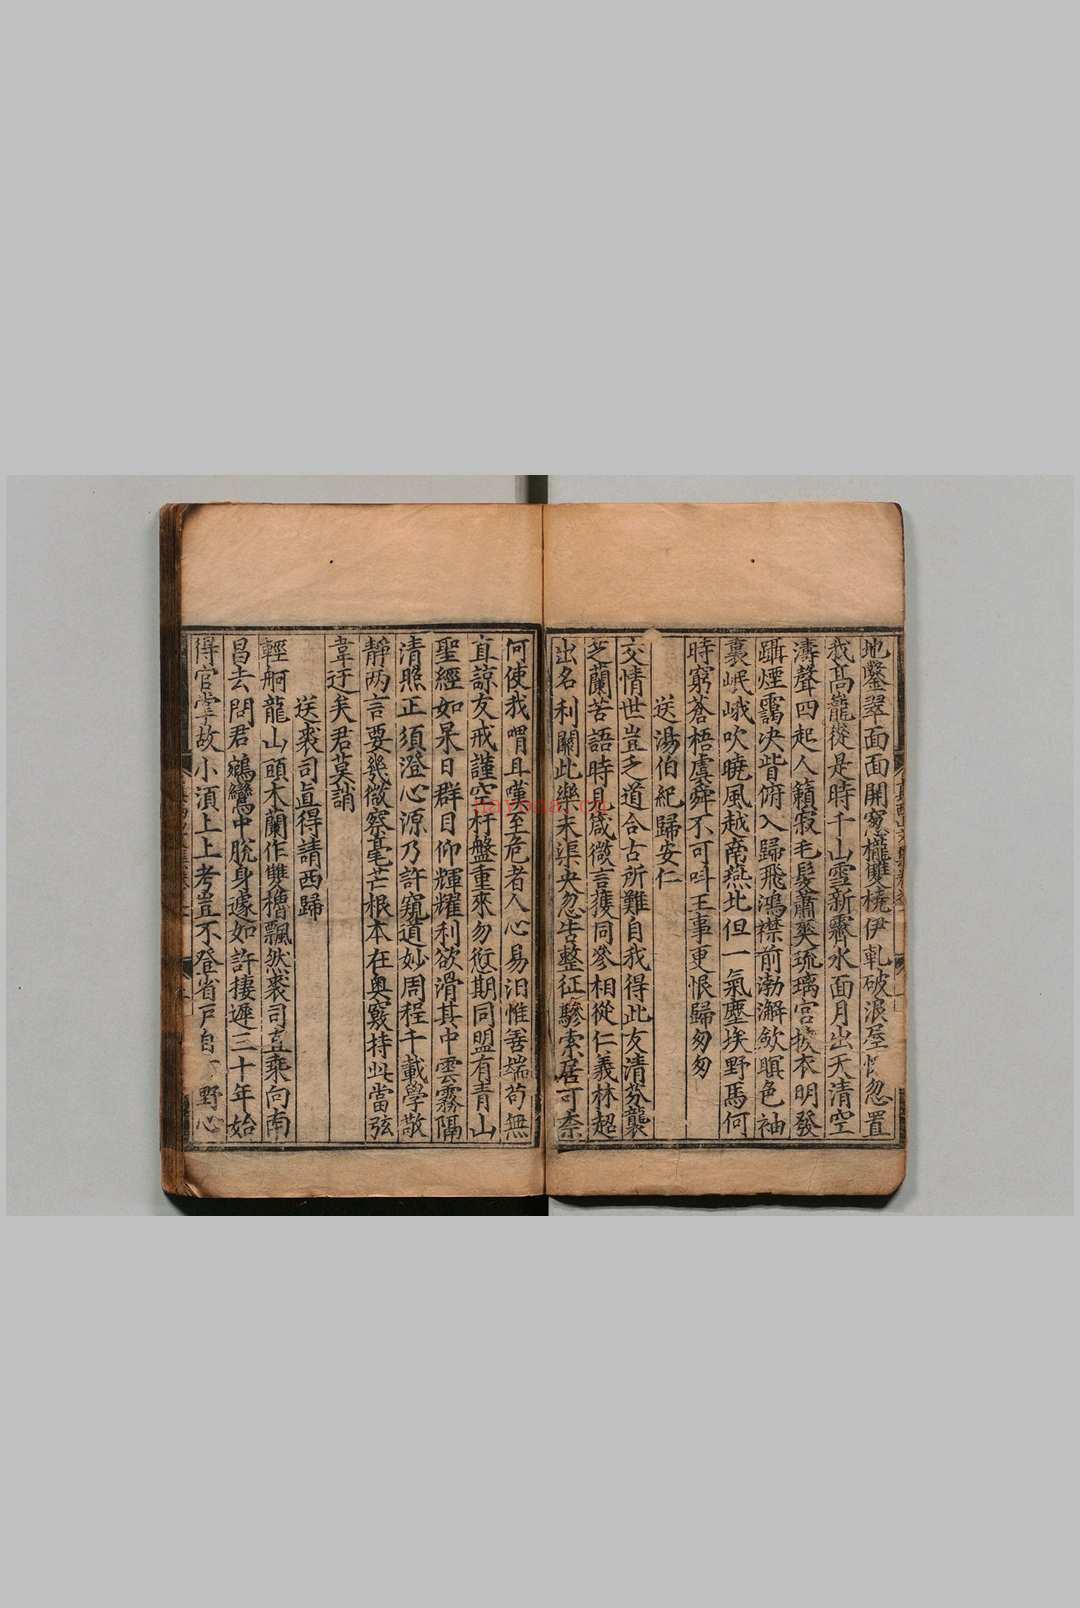 地鑿翠面面開窻櫳雙橈伊軋破浪屋忽置
我高巃嵸是時千山雪新霽水面月出天清空
濤聲四起人籟寂毛髮蕭爽琉璃宮披衣明發
躡煙靄决眥俯入歸飛鴻襟前渤澥斂暝色袖
裏岷峨吹曉風越南燕北但一氣塵埃野馬何
時窮蒼梧虞舜不可呌王事更恨歸匆匆
送湯伯紀歸安仁
交情世豈乏道合古所難自我得此友清芬襲
芝蘭苦語時見箴微言獲同參相從仁義林超
出名利關此樂未渠央忽告整征驂索居可柰
何使我喟且嘆至危者人心易汩惟善端苟無
直諒友戒謹空杅盤重來勿愆期同盟有青山
聖經如杲日群目仰輝耀利欲滑其中雲霧隔
清照正須澄心源乃許窺道妙周程千載學敬
静两言要幾微察毫芒根本在奥竅持此當弦
韋迂矣君莫誚
送裘司直得請西歸
輕舸龍山頭木蘭作雙櫓飄然裘司直乗向南
昌去問君鵷鸞中脫身遽如許捿遲三十年始
得官掌故小湏上上考豈不登省戸自野心
nayona.cn